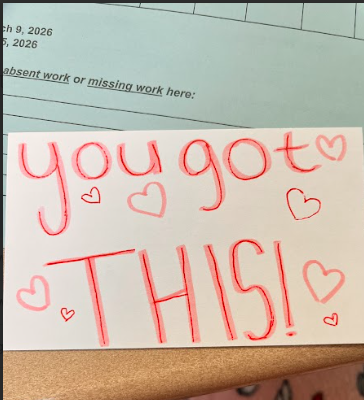 ch 9, 2026
5, 2026
absent work or missing work here:
you got
THIS!